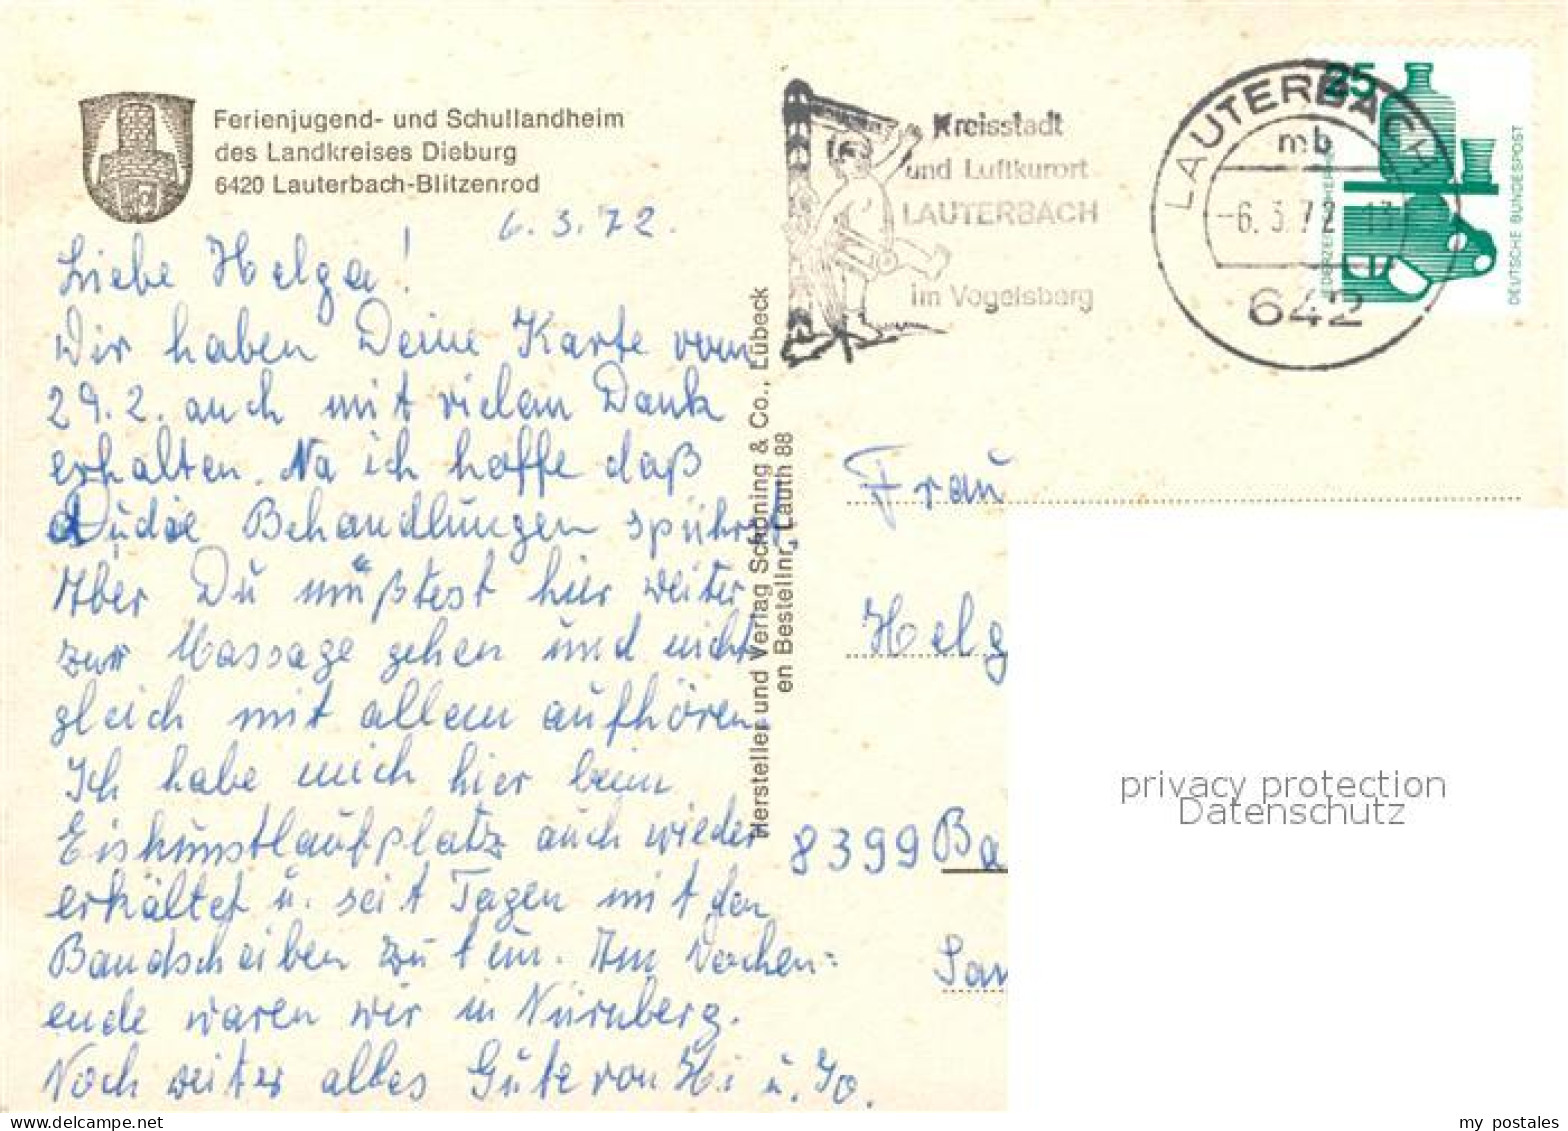 Ferienjugend- und Schullandheim
des Landkreises Dieburg
6420 Lauterbach-Blitzenrod
6.3.72.
Liebe Helga!
Wir haben Deine Karte vom
29.2. auch mit vielem Dank
erhalten. Na ich hoffe daß
Du die Behandlungen spührst,
Aber Du müßtest hier weiter
zur Massage gehen und nicht
gleich mit allem aufhören.
Ich habe mich hier beim
Eiskunstlaufplatz auch wieder
erkältet u. seit Tagen mit den
Bandscheiben zu tun. Am Wochen=
ende waren wir in Nürnberg.
Noch weiter alles Gute von Hi u. Jo.
Hersteller und Verlag Schöning & Co., Lübeck
en Bestellnr. Lauth 88
Kreisstadt
und Luftkurort
LAUTERBACH
im Vogelsberg
LAUTERBACH
mb
-6.3.72.-13
642
25
DEUTSCHE BUNDESPOST
Frau
Helg
8399 Ba
San
privacy protection
Datenschutz
my postales